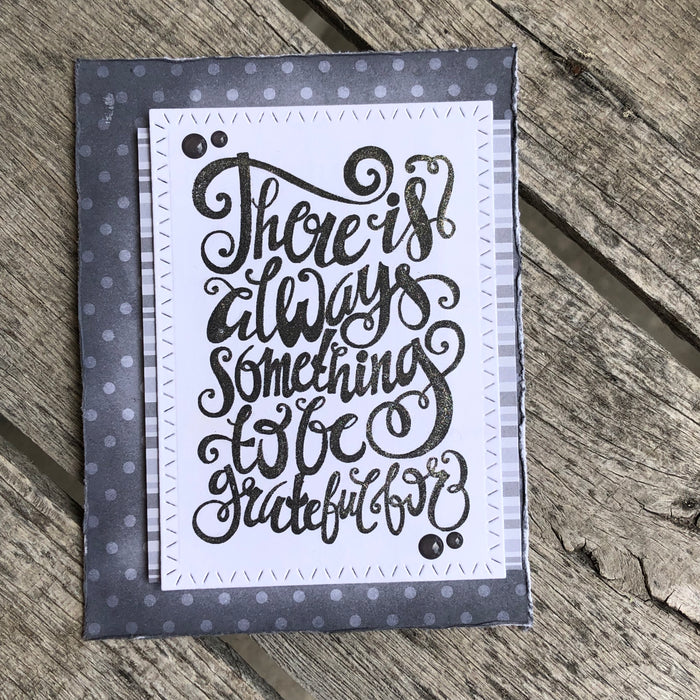 There is
always
something
to be
grateful for